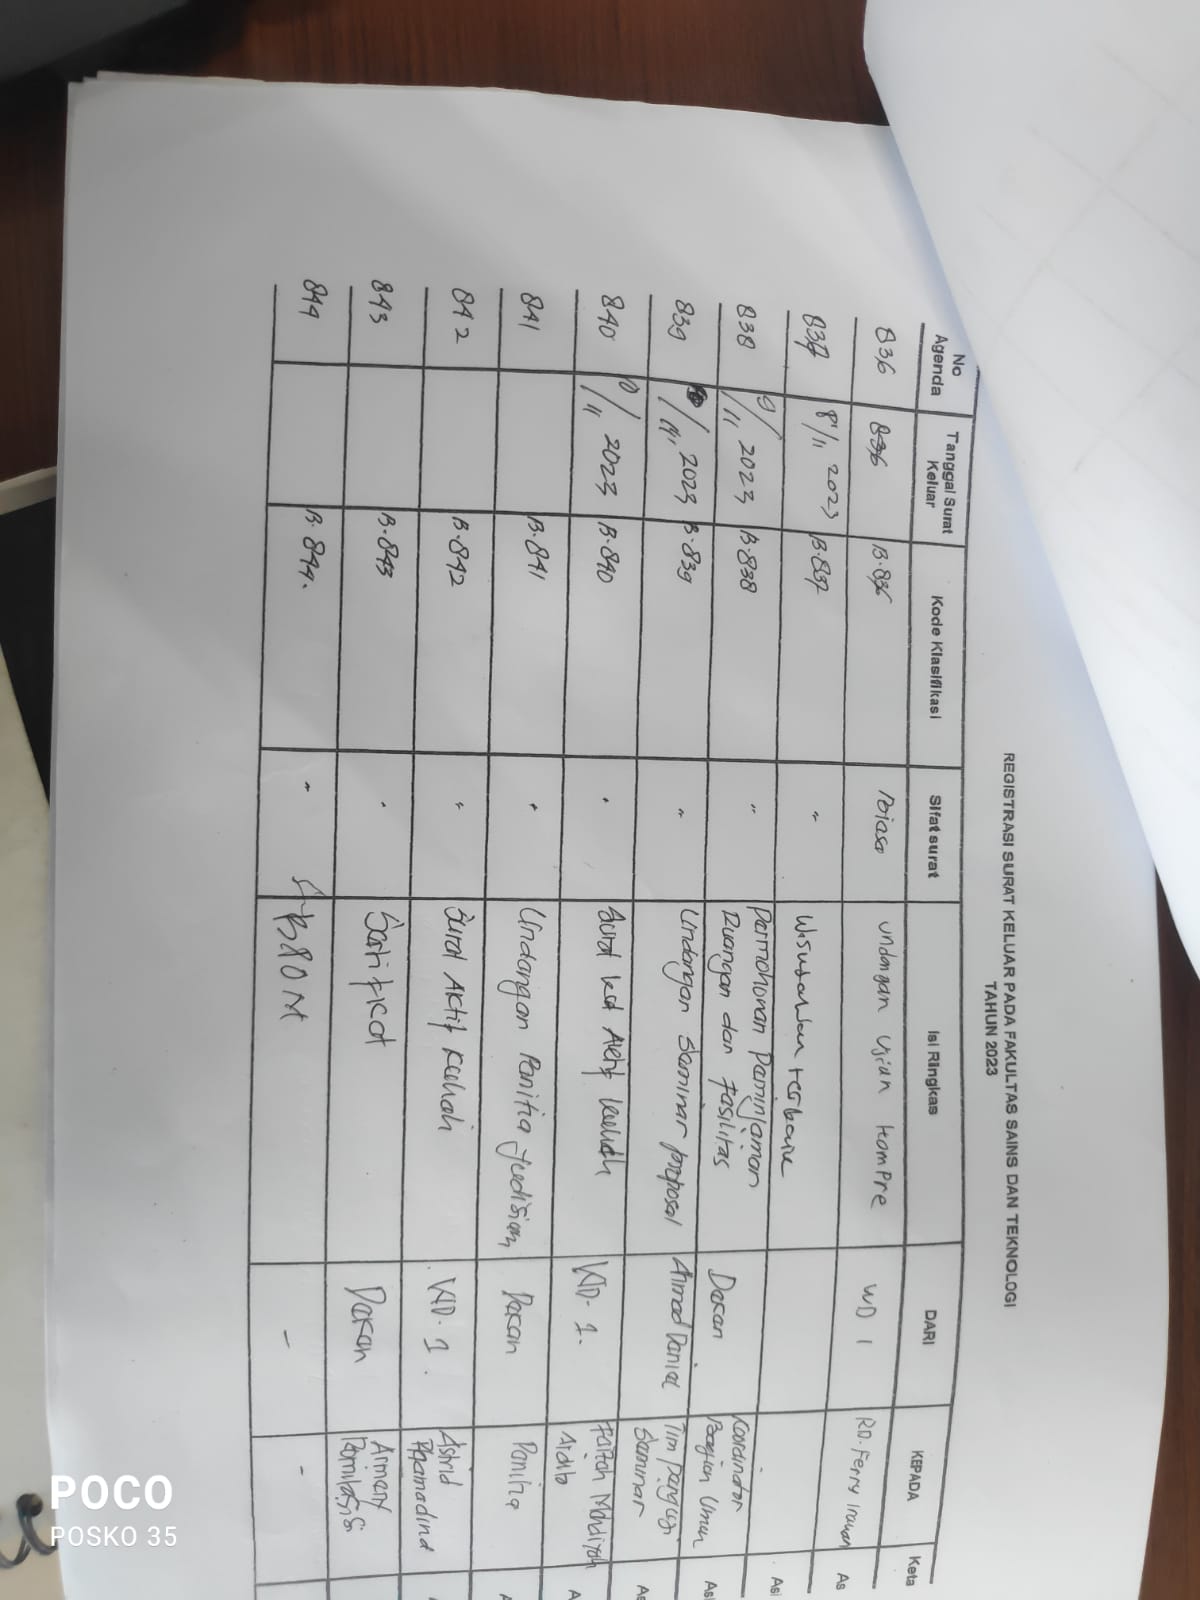 REGISTRASI SURAT KELUAR PADA FAKULTAS SAINS DAN TEKNOLOGI
TAHUN 2023
No Agenda Tanggal Surat Keluar Kode Klasifikasi Sifat surat Isi Ringkas DARI KEPADA Keta
836 836 B.836 Biasa undangan Ujian Kompre WD 1 RD. Ferry Irawan As
837 8/11 2023 B.837 " Wisudawan terbaik Asi
838 9/11 2023 B.838 " Permohonan Peminjaman Dekan Koordinator Asl
Ruangan dan Fasilitas Bagian Umum
839 /11 2023 B.839 " Undangan Seminar proposal Ahmad Daniel Tim penguji As
Seminar
840 10/11 2023 B.840 " Surat Ket Aktif Kuliah WD. 1. Mahdiyah A
841 B.841 " Undangan Panitia Yudisium Dekan Panitia A
842 B.842 " Surat Aktif Kuliah WD. 1. Astrid
Rhamadina
843 B.843 " Sertifikat Dekan
844 B.844. " - -
POCO
POSKO 35